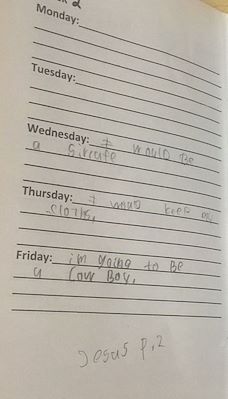 2
Monday:
Tuesday:
Wednesday: I would Be
a Giraafe
Thursday: I would keep my
cloths.
Friday: im going to Be
a Cow Boy.
Jesus p.2